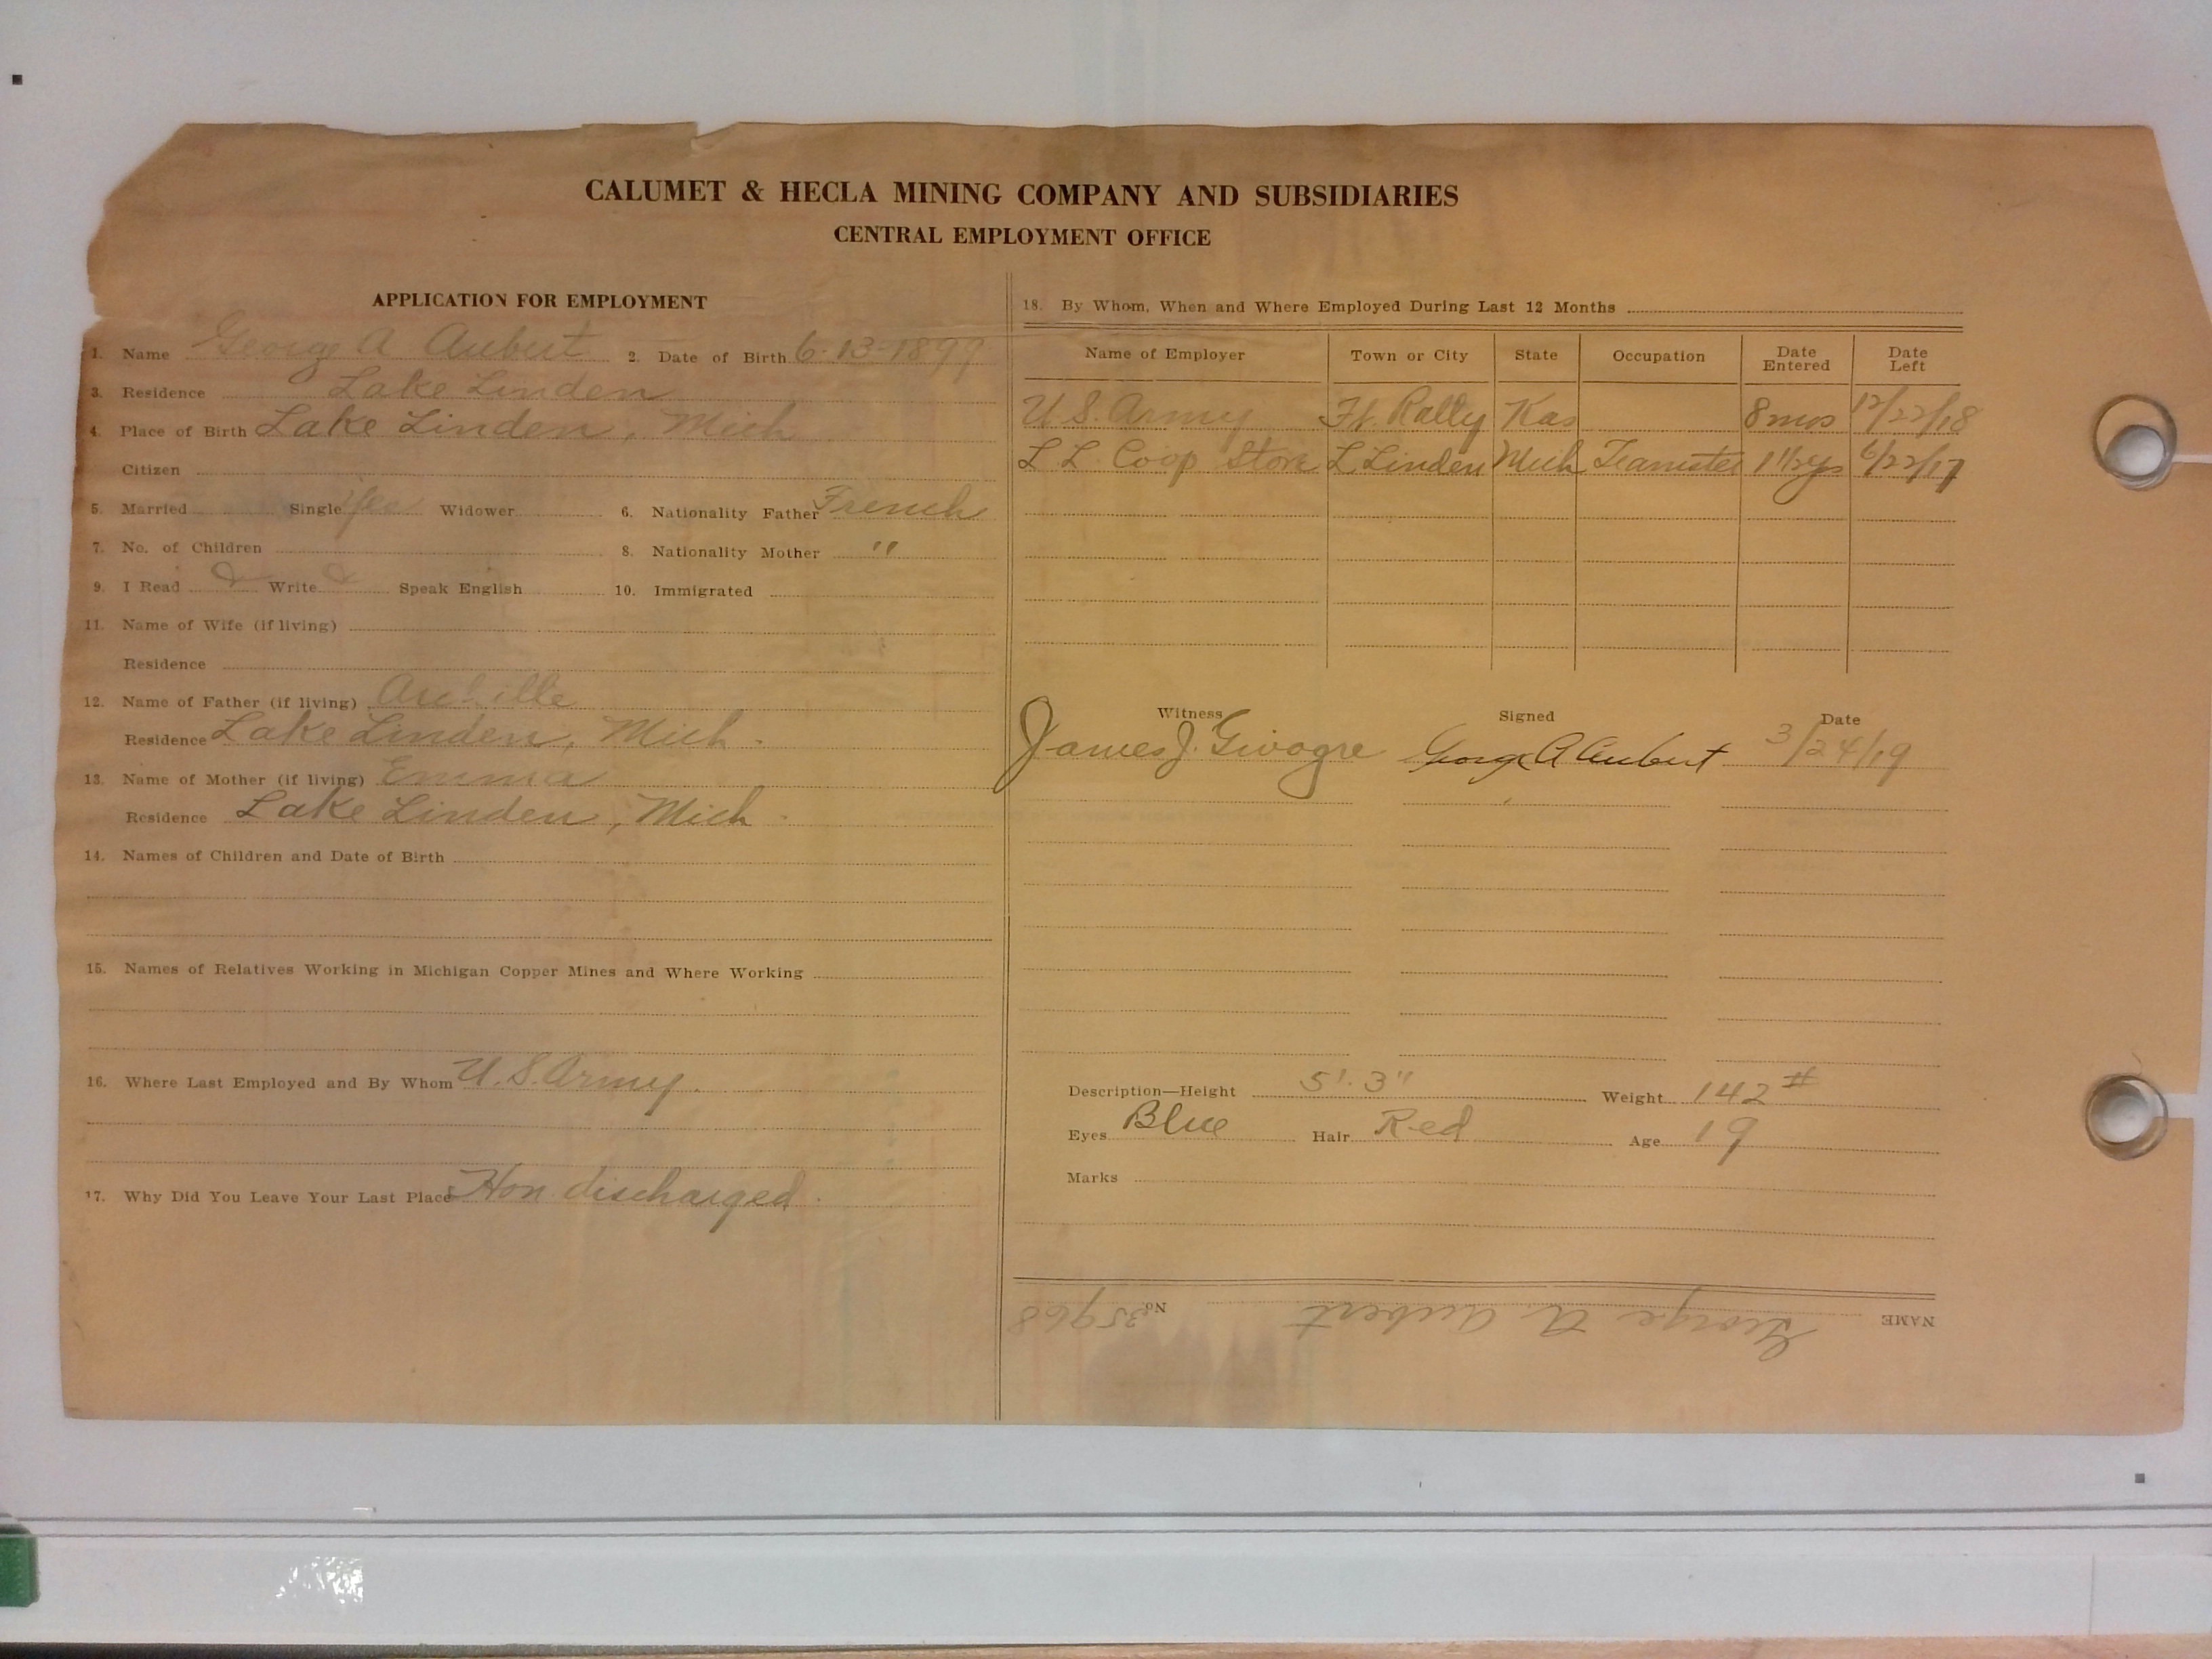 CALUMET & HECLA MINING COMPANY AND SUBSIDIARIES
CENTRAL EMPLOYMENT OFFICE
APPLICATION FOR EMPLOYMENT
1. Name George A Aubert 2. Date of Birth 6-13-1899
3. Residence Lake Linden
4. Place of Birth Lake Linden, Mich
Citizen
5. Married Single Yes Widower 6. Nationality Father French
7. No. of Children 8. Nationality Mother "
9. I Read Write Speak English 10. Immigrated
11. Name of Wife (if living)
Residence
12. Name of Father (if living) Archille
Residence Lake Linden, Mich.
13. Name of Mother (if living) Emma
Residence Lake Linden, Mich.
14. Names of Children and Date of Birth
15. Names of Relatives Working in Michigan Copper Mines and Where Working
16. Where Last Employed and By Whom U.S. Army.
17. Why Did You Leave Your Last Place Hon discharged.
18. By Whom, When and Where Employed During Last 12 Months
Name of Employer Town or City State Occupation Date Entered Date Left
U S. Army Ft. Rally Kas 8 mos 12/22/18
L L. Coop Store L Linden Mich Teamster 1 1/2 ys 6/22/17
Witness Signed Date
James J. Givogre George A Aubert 3/24/19
Description—Height 5'. 3" Weight 142 #
Eyes Blue Hair Red Age 19
Marks
NAME George A. Aubert No. 35968